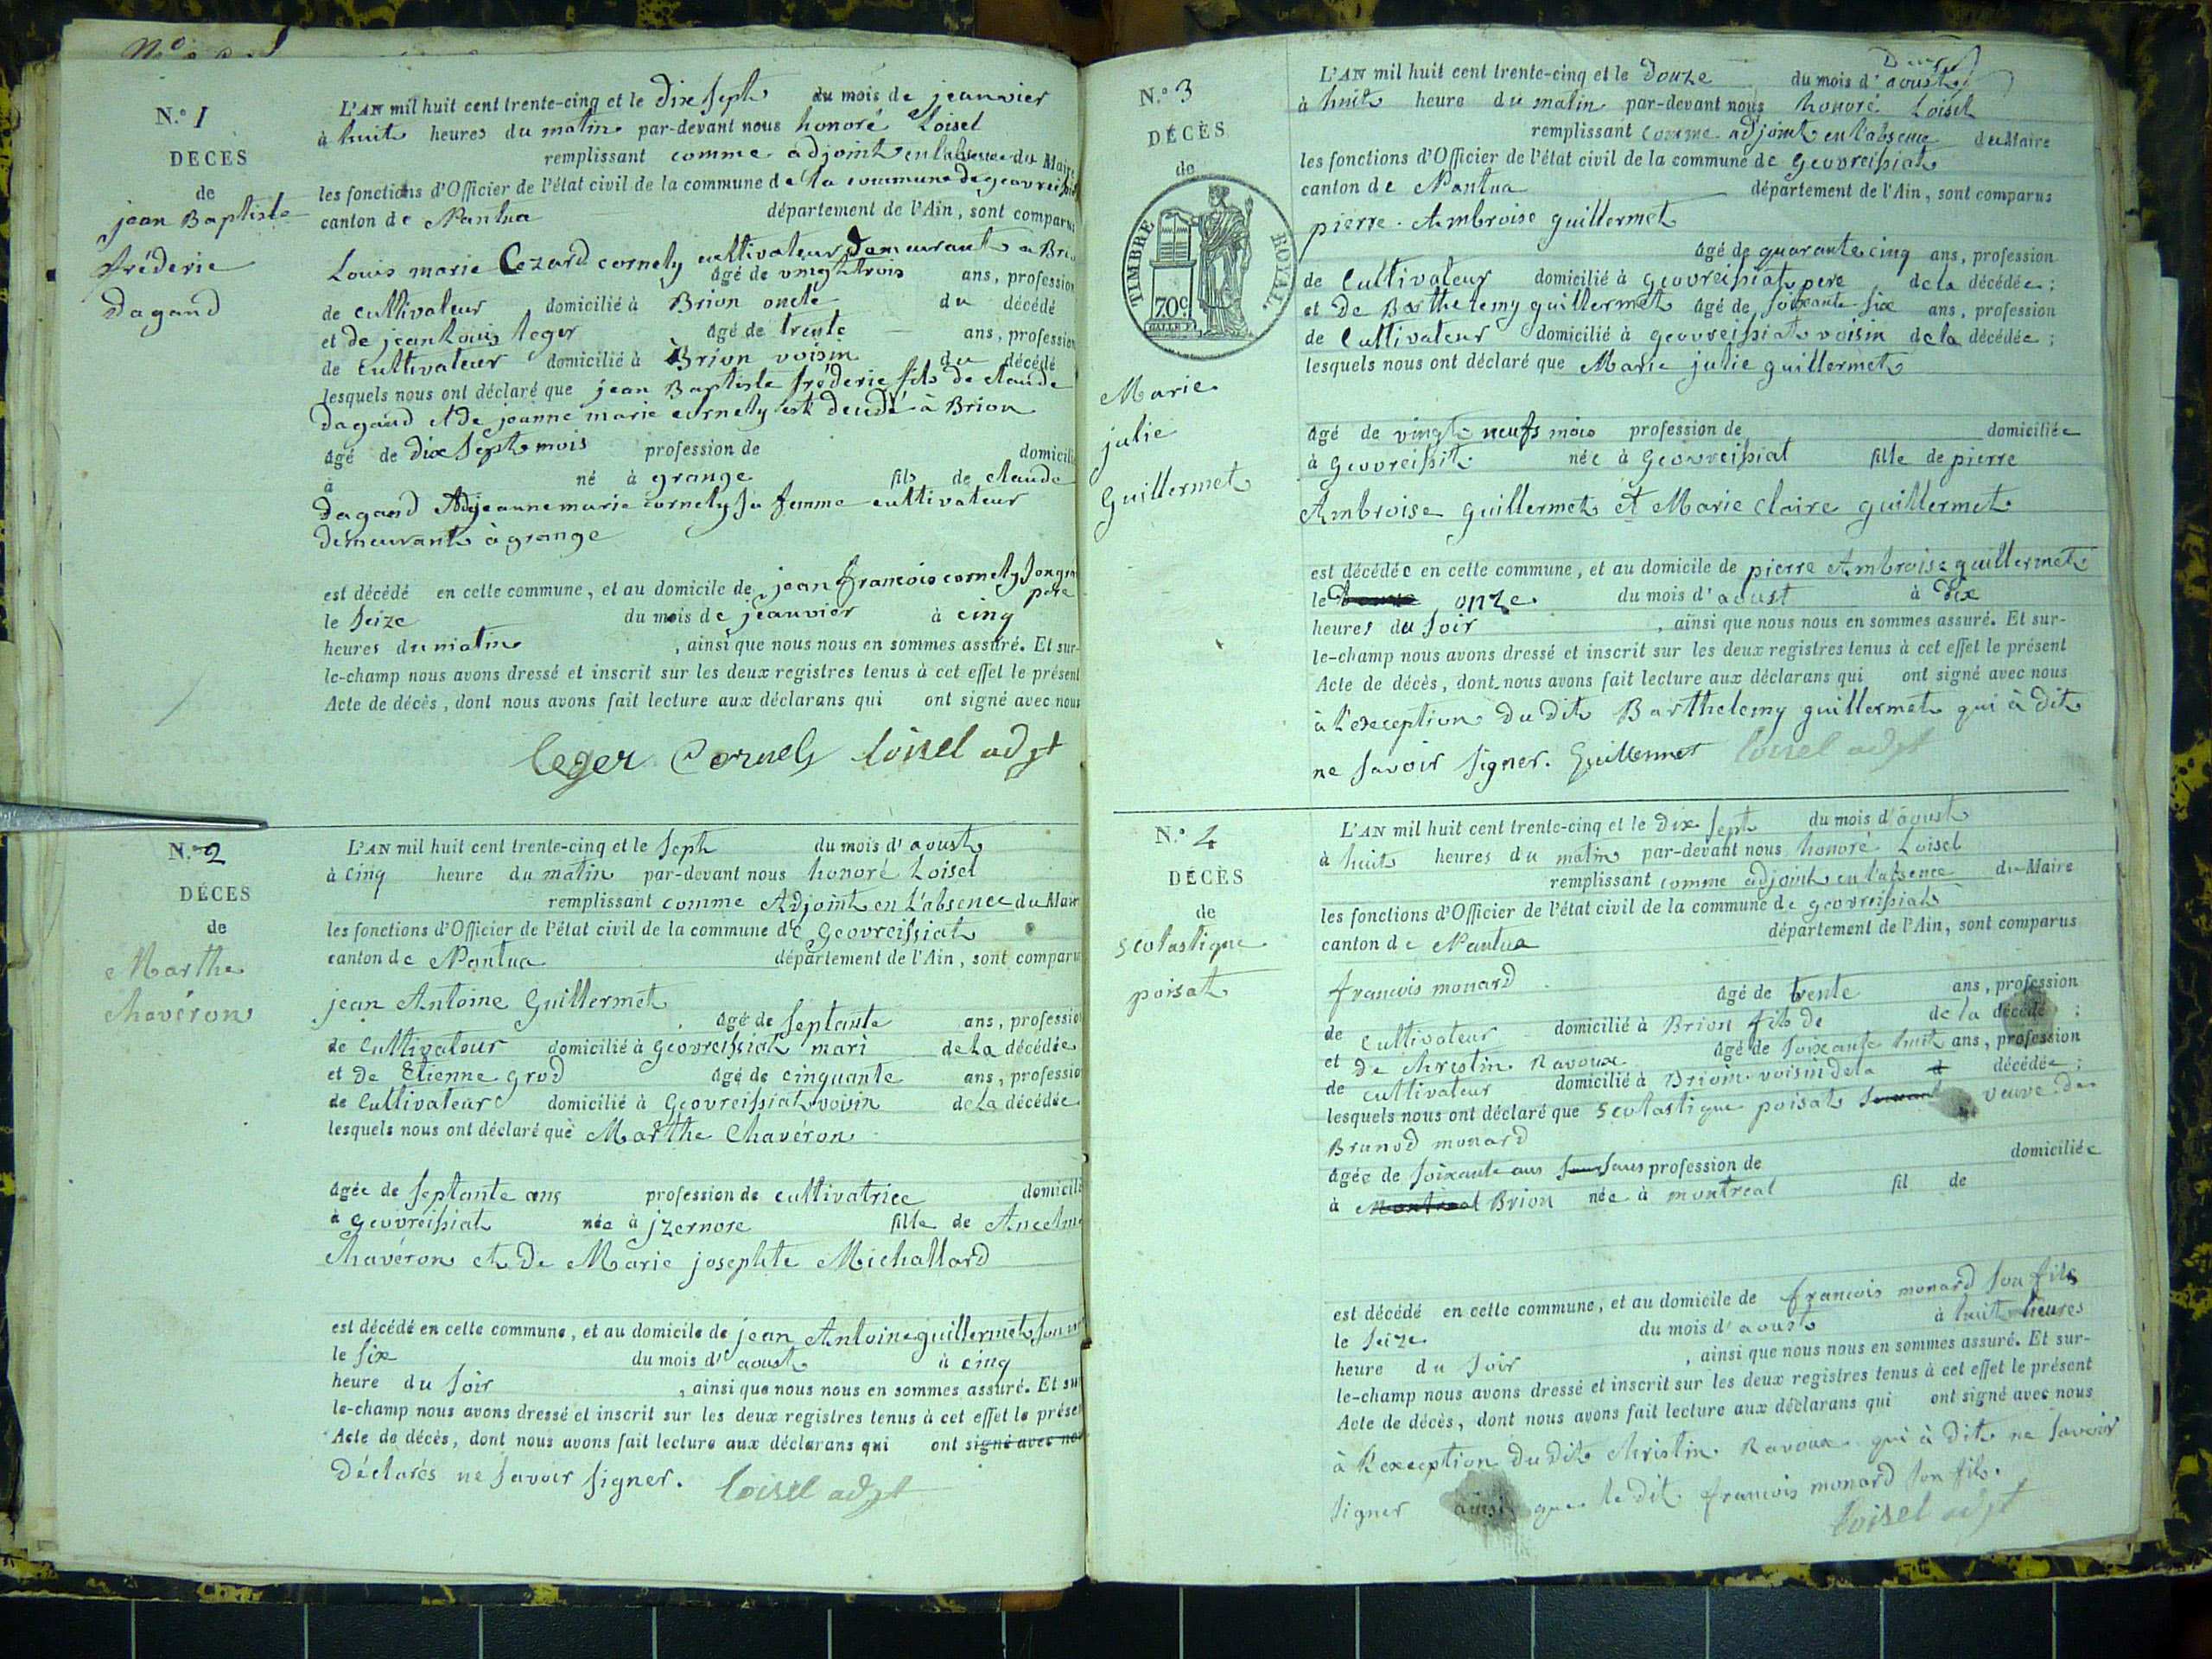 N.º 1
DÉCÈS
de
jean Baptiste
fréderic
dagand
L'AN mil huit cent trente-cinq et le dix sept du mois de jeanvier
à huit heures du matin par-devant nous honoré Loisel
remplissant comme adjoint en l'absence du Maire
les fonctions d'Officier de l'état civil de la commune de la commune de geovreissiat
canton de Nantua département de l'Ain, sont comparus
Louis marie Cezard cornely cultivateur demeurant a Brion
âgé de vingt trois ans, profession
de cultivateur domicilié à Brion oncle du décédé
et de jean Louis leger âgé de trente ans, profession
de Cultivateur domicilié à Brion voisin du décédé
lesquels nous ont déclaré que jean Baptiste fréderic fils de claude
dagand et de jeanne marie cornely est décédé à Brion
âgé de dix sept mois profession de domicilié
à né à grange fils de claude
dagand et de jeanne marie cornely sa femme cultivateur
demeurant à grange
est décédé en cette commune, et au domicile de jean francois cornely son grand
pere
le seize du mois de jeanvier à cinq
heures du matin , ainsi que nous nous en sommes assuré. Et sur-
le-champ nous avons dressé et inscrit sur les deux registres tenus à cet effet le présent
Acte de décès, dont nous avons fait lecture aux déclarans qui ont signé avec nous
leger Cornely loisel adjt
N.º 2
DÉCES
de
Marthe
chavéron
L'AN mil huit cent trente-cinq et le sept du mois d'aoust
à cinq heure du matin par-devant nous honoré Loisel
remplissant comme Adjoint en L'absence du Maire
les fonctions d'Officier de l'état civil de la commune de Geovreissiat
canton de Nantua département de l'Ain, sont comparus
jean Antoine Guillermet
âgé de septante ans, profession
de Cultivateur domicilié à geovreissiat mari de La décédée
et de Etienne grod âgé de cinquante ans, profession
de Cultivateur domicilié à Geovreissiat voisin de La décédée
lesquels nous ont déclaré que Marthe Chavéron
âgée de septante ans profession de cultivatrice domiciliée
à geovreissiat née à jzernore fille de Ancelme
chavéron et de Marie josephte Michallard
est décédé en cette commune, et au domicile de jean Antoine guillermet son mari
le six du mois d'aoust à cinq
heure du soir , ainsi que nous nous en sommes assuré. Et sur
le-champ nous avons dressé et inscrit sur les deux registres tenus à cet effet le présent
Acte de décès, dont nous avons fait lecture aux déclarans qui ont signé avec nous
Déclarés ne savoir signer. loisel adjt
N.º 3
DÉCÈS
de
TIMBRE ROYAL
70c
Marie
julie
Guillermet
L'AN mil huit cent trente-cinq et le douze du mois d'aoust
à huit heure du matin par-devant nous honoré Loisel
remplissant comme adjoint en l'absence du Maire
les fonctions d'Officier de l'état civil de la commune de geovreissiat
canton de Nantua département de l'Ain, sont comparus
pierre Ambroise guillermet
âgé de quarante cinq ans, profession
de Cultivateur domicilié à geovreissiat pere de la décédée;
et de Barthelemy guillermet âgé de soixante six ans, profession
de Cultivateur domicilié à geovreissiat voisin de la décédée;
lesquels nous ont déclaré que Marie julie guillermet
âgé de vingt neufs mois profession de domiciliée
à geovreissit née à geovreissiat fille de pierre
Ambroise guillermet et Marie claire guillermet
est décédée en cette commune, et au domicile de pierre Ambroise guillermet
le onze du mois d'aoust à dix
heures du soir , ainsi que nous nous en sommes assuré. Et sur-
le-champ nous avons dressé et inscrit sur les deux registres tenus à cet effet le présent
Acte de décès, dont nous avons fait lecture aux déclarans qui ont signé avec nous
à l'exception du dit Barthelemy guillermet qui à dit
ne savoir signer. Guillermet loisel adjt
N.º 4
DÉCÈS
de
scolastique
poisat
L'AN mil huit cent trente-cinq et le dix sept du mois d'aoust
à huit heures du matin par-devant nous honoré Loisel
remplissant comme adjoint en l'absence du Maire
les fonctions d'Officier de l'état civil de la commune de geovreissiat
canton de Nantua département de l'Ain, sont comparus
francois monard
âgé de trente ans, profession
de Cultivateur domicilié à Brion fils de de la décédé ;
et de christin Ravoux âgé de soixante huit ans, profession
de cultivateur domicilié à Brion voisin de la décédée;
lesquels nous ont déclaré que scolastique poisat veuve de
Brunod monard
âgée de soixante ans sans profession de domiciliée
à Montreal Brion née à montreal fil de
est décédé en cette commune, et au domicile de francois monard son fils
le seize du mois d'aoust à huit heures
heure du soir , ainsi que nous nous en sommes assuré. Et sur-
le-champ nous avons dressé et inscrit sur les deux registres tenus à cet effet le présent
Acte de décès, dont nous avons fait lecture aux déclarans qui ont signé avec nous
à l'exception du dit christin Ravoux qui à dit ne savoir
signer ainsi que le dit francois monard son fils.
loisel adjt